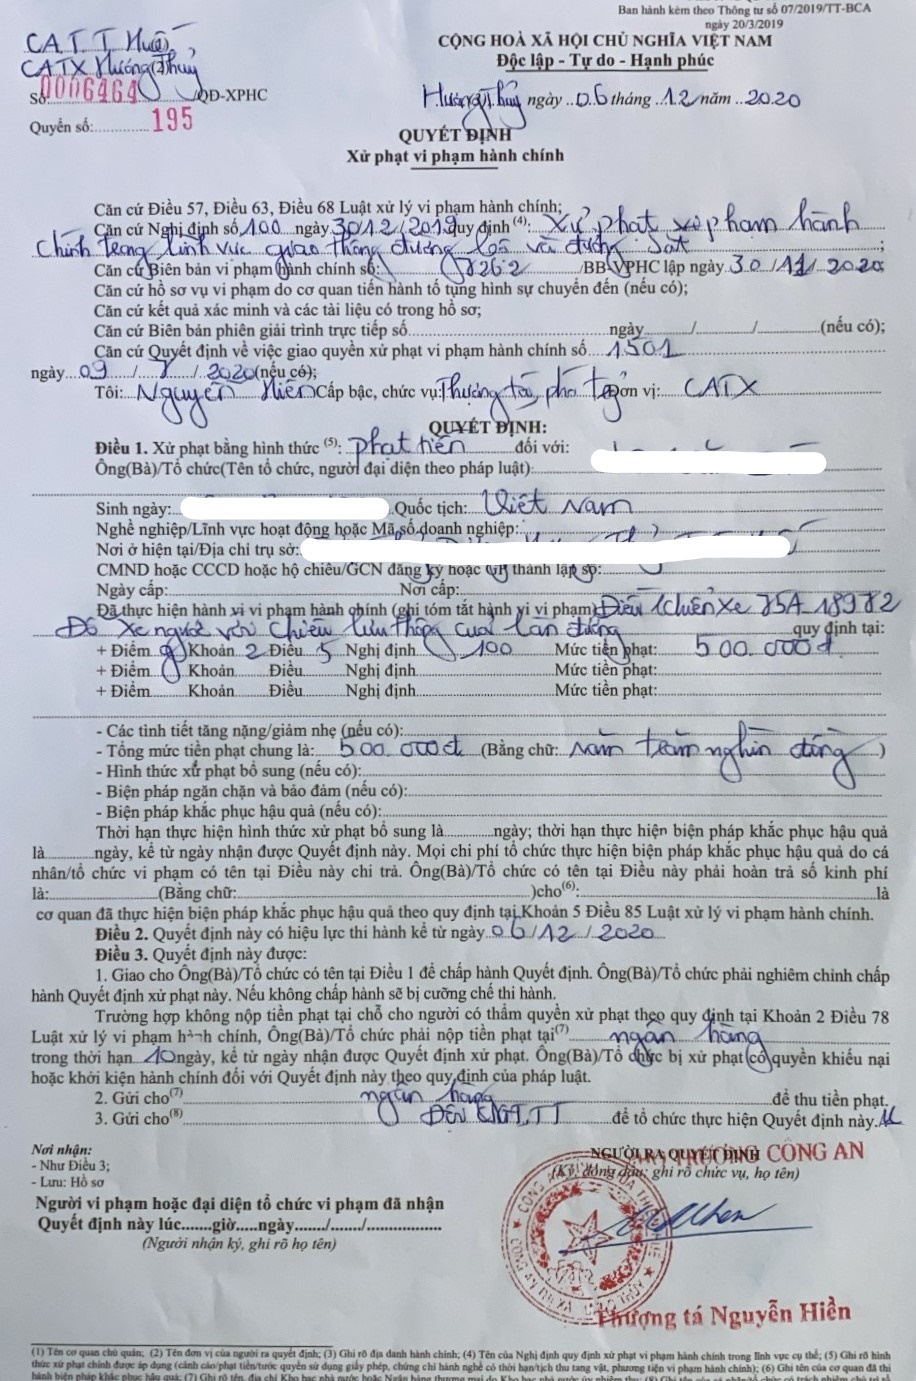 Ban hành kèm theo Thông tư số 07/2019/TT-BCA
ngày 20/3/2019
C.A.T.T Huế
CATX Hương(2)Thủy
Số 0006464 /QĐ-XPHC
Quyển số: 195
CỘNG HOÀ XÃ HỘI CHỦ NGHĨA VIỆT NAM
Độc lập - Tự do - Hạnh phúc
Hương Thủy ngày ..06 tháng .12 năm ..2020
QUYẾT ĐỊNH
Xử phạt vi phạm hành chính
Căn cứ Điều 57, Điều 63, Điều 68 Luật xử lý vi phạm hành chính;
Căn cứ Nghị định số 100 ngày 30/12/2019 quy định (4): Xử phạt vi phạm hành
chính trong lĩnh vực giao thông đường bộ và đường sắt ;
Căn cứ Biên bản vi phạm hành chính số: /BB-VPHC lập ngày 30/11/2020
Căn cứ hồ sơ vụ vi phạm do cơ quan tiến hành tố tụng hình sự chuyển đến (nếu có);
Căn cứ kết quả xác minh và các tài liệu có trong hồ sơ;
Căn cứ Biên bản phiên giải trình trực tiếp số ngày / / (nếu có);
Căn cứ Quyết định về việc giao quyền xử phạt vi phạm hành chính số 1501
ngày 09 / / 2020 (nếu có);
Tôi: Nguyễn Hiền Cấp bậc, chức vụ: Thượng tá, phó Đơn vị: CATX
QUYẾT ĐỊNH:
Điều 1. Xử phạt bằng hình thức (5): phạt tiền đối với:
Ông(Bà)/Tổ chức(Tên tổ chức, người đại diện theo pháp luật):
Sinh ngày: Quốc tịch: Việt Nam
Nghề nghiệp/Lĩnh vực hoạt động hoặc Mã số doanh nghiệp:
Nơi ở hiện tại/Địa chỉ trụ sở:
CMND hoặc CCCD hoặc hộ chiếu/GCN đăng ký hoặc GP thành lập số:
Ngày cấp: Nơi cấp:
Đã thực hiện hành vi vi phạm hành chính (ghi tóm tắt hành vi vi phạm) Điều khiển xe 75A 18972
Đỗ xe ngược với chiều lưu thông của làn đường quy định tại:
+ Điểm g Khoản 2 Điều 5 Nghị định 100 Mức tiền phạt: 500.000đ
+ Điểm Khoản Điều Nghị định Mức tiền phạt:
+ Điểm Khoản Điều Nghị định Mức tiền phạt:
- Các tình tiết tăng nặng/giảm nhẹ (nếu có):
- Tổng mức tiền phạt chung là: 500.000đ (Bằng chữ: năm trăm nghìn đồng )
- Hình thức xử phạt bổ sung (nếu có):
- Biện pháp ngăn chặn và bảo đảm (nếu có):
- Biện pháp khắc phục hậu quả (nếu có):
Thời hạn thực hiện hình thức xử phạt bổ sung là ngày; thời hạn thực hiện biện pháp khắc phục hậu quả
là ngày, kể từ ngày nhận được Quyết định này. Mọi chi phí tổ chức thực hiện biện pháp khắc phục hậu quả do cá
nhân/tổ chức vi phạm có tên tại Điều này chi trả. Ông(Bà)/Tổ chức có tên tại Điều này phải hoàn trả số kinh phí
là: (Bằng chữ: )cho(6): là
cơ quan đã thực hiện biện pháp khắc phục hậu quả theo quy định tại Khoản 5 Điều 85 Luật xử lý vi phạm hành chính.
Điều 2. Quyết định này có hiệu lực thi hành kể từ ngày 06/12/2020
Điều 3. Quyết định này được:
1. Giao cho Ông(Bà)/Tổ chức có tên tại Điều 1 để chấp hành Quyết định. Ông(Bà)/Tổ chức phải nghiêm chỉnh chấp
hành Quyết định xử phạt này. Nếu không chấp hành sẽ bị cưỡng chế thi hành.
Trường hợp không nộp tiền phạt tại chỗ cho người có thẩm quyền xử phạt theo quy định tại Khoản 2 Điều 78
Luật xử lý vi phạm hành chính, Ông(Bà)/Tổ chức phải nộp tiền phạt tại(7) ngân hàng
trong thời hạn 10 ngày, kể từ ngày nhận được Quyết định xử phạt. Ông(Bà)/Tổ chức bị xử phạt có quyền khiếu nại
hoặc khởi kiện hành chính đối với Quyết định này theo quy định của pháp luật.
2. Gửi cho(7) ngân hàng để thu tiền phạt.
3. Gửi cho(8) Đội CSGT,TT để tổ chức thực hiện Quyết định này.
Nơi nhận:
- Như Điều 3;
- Lưu: Hồ sơ
Người vi phạm hoặc đại diện tổ chức vi phạm đã nhận
Quyết định này lúc.......giờ.....ngày......./......./.................
(Người nhận ký, ghi rõ họ tên)
NGƯỜI RA QUYẾT ĐỊNH
TRƯỞNG CÔNG AN
(Ký, đóng dấu; ghi rõ chức vụ, họ tên)
Thượng tá Nguyễn Hiền
(1) Tên cơ quan chủ quản; (2) Tên đơn vị của người ra quyết định; (3) Ghi rõ địa danh hành chính; (4) Tên của Nghị định quy định xử phạt vi phạm hành chính trong lĩnh vực cụ thể; (5) Ghi rõ hình
thức xử phạt chính được áp dụng (cảnh cáo/phạt tiền/tước quyền sử dụng giấy phép, chứng chỉ hành nghề có thời hạn/tịch thu tang vật, phương tiện vi phạm hành chính); (6) Ghi tên của cơ quan đã thi